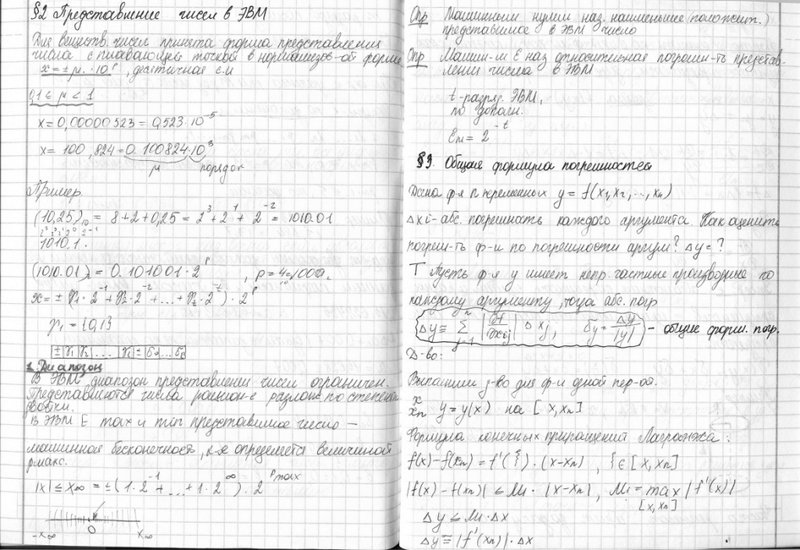 §2 Представление чисел в ЭВМ
Для веществ. чисел принята форма представления
числа с плавающей точкой в нормализов-ой форме
x = ± μ · 10^p, десятичная с.и
0,1 ≤ μ < 1
x = 0,00000523 = 0,523 · 10^-5
x = 100,824 = 0.100824 · 10^3
μ порядок
Пример
(10,25)10 = 8+2+0,25 = 2^3 + 2^1 + 2^-2 = 1010.01
1010.1.
(1010.01)2 = 0.101001 · 2^p, p = 4 =
x = ± (γ1 · 2^-1 + γ2 · 2^-2 + ... + γt · 2^-t) · 2^p
γ1 = {0,1}
1. Диапазон
В ЭВМ диапазон представления чисел ограничен.
Представляются числа по степеням
двойки.
В ЭВМ Е max и min представимое число –
машинная бесконечность, к-я определяется величиной
pмакс.
|x| ≤ X∞ = ± (1 · 2^-1 + ... + 1 · 2^∞) · 2^pmax
-X∞ 0 X∞
Опр Машинным нулем наз. наименьшее положит.)
представимое в ЭВМ число
Опр Машин-м Е наз относительная погрешн-ть представ-
ления числа в ЭВМ
t - разряд. ЭВМ,
по дополн.
Ем = 2^-t
§3 Общая формула погрешностей
Дана ф-я n переменных y = f(x1, x2, ..., xn)
Δxi - абс. погрешность каждого аргумента. Как оценить
погрешн-ть ф-и по погрешности аргум? Δy = ?
Т Пусть ф-я y имеет непр. частные производные по
каждому аргументу, тогда абс. погр
Δy ≡ Σ |∂f/∂xj| Δxj, δy = Δy/|y| - общие форм. погр.
Д-во:
Выпишем д-во для ф-и одной пер-ой.
x xn y = y(x) на [x, xn]
Формула конечных приращений Лагранжа:
f(x) - f(xn) = f'(ξ) · (x - xn), ξ ∈ [x, xn]
|f(x) - f(xn)| ≤ M1 · |x - xn|, M1 = max |f'(x)|
[x, xn]
Δy ≤ M1 · Δx
Δy ≡ |f'(xn)| · Δx